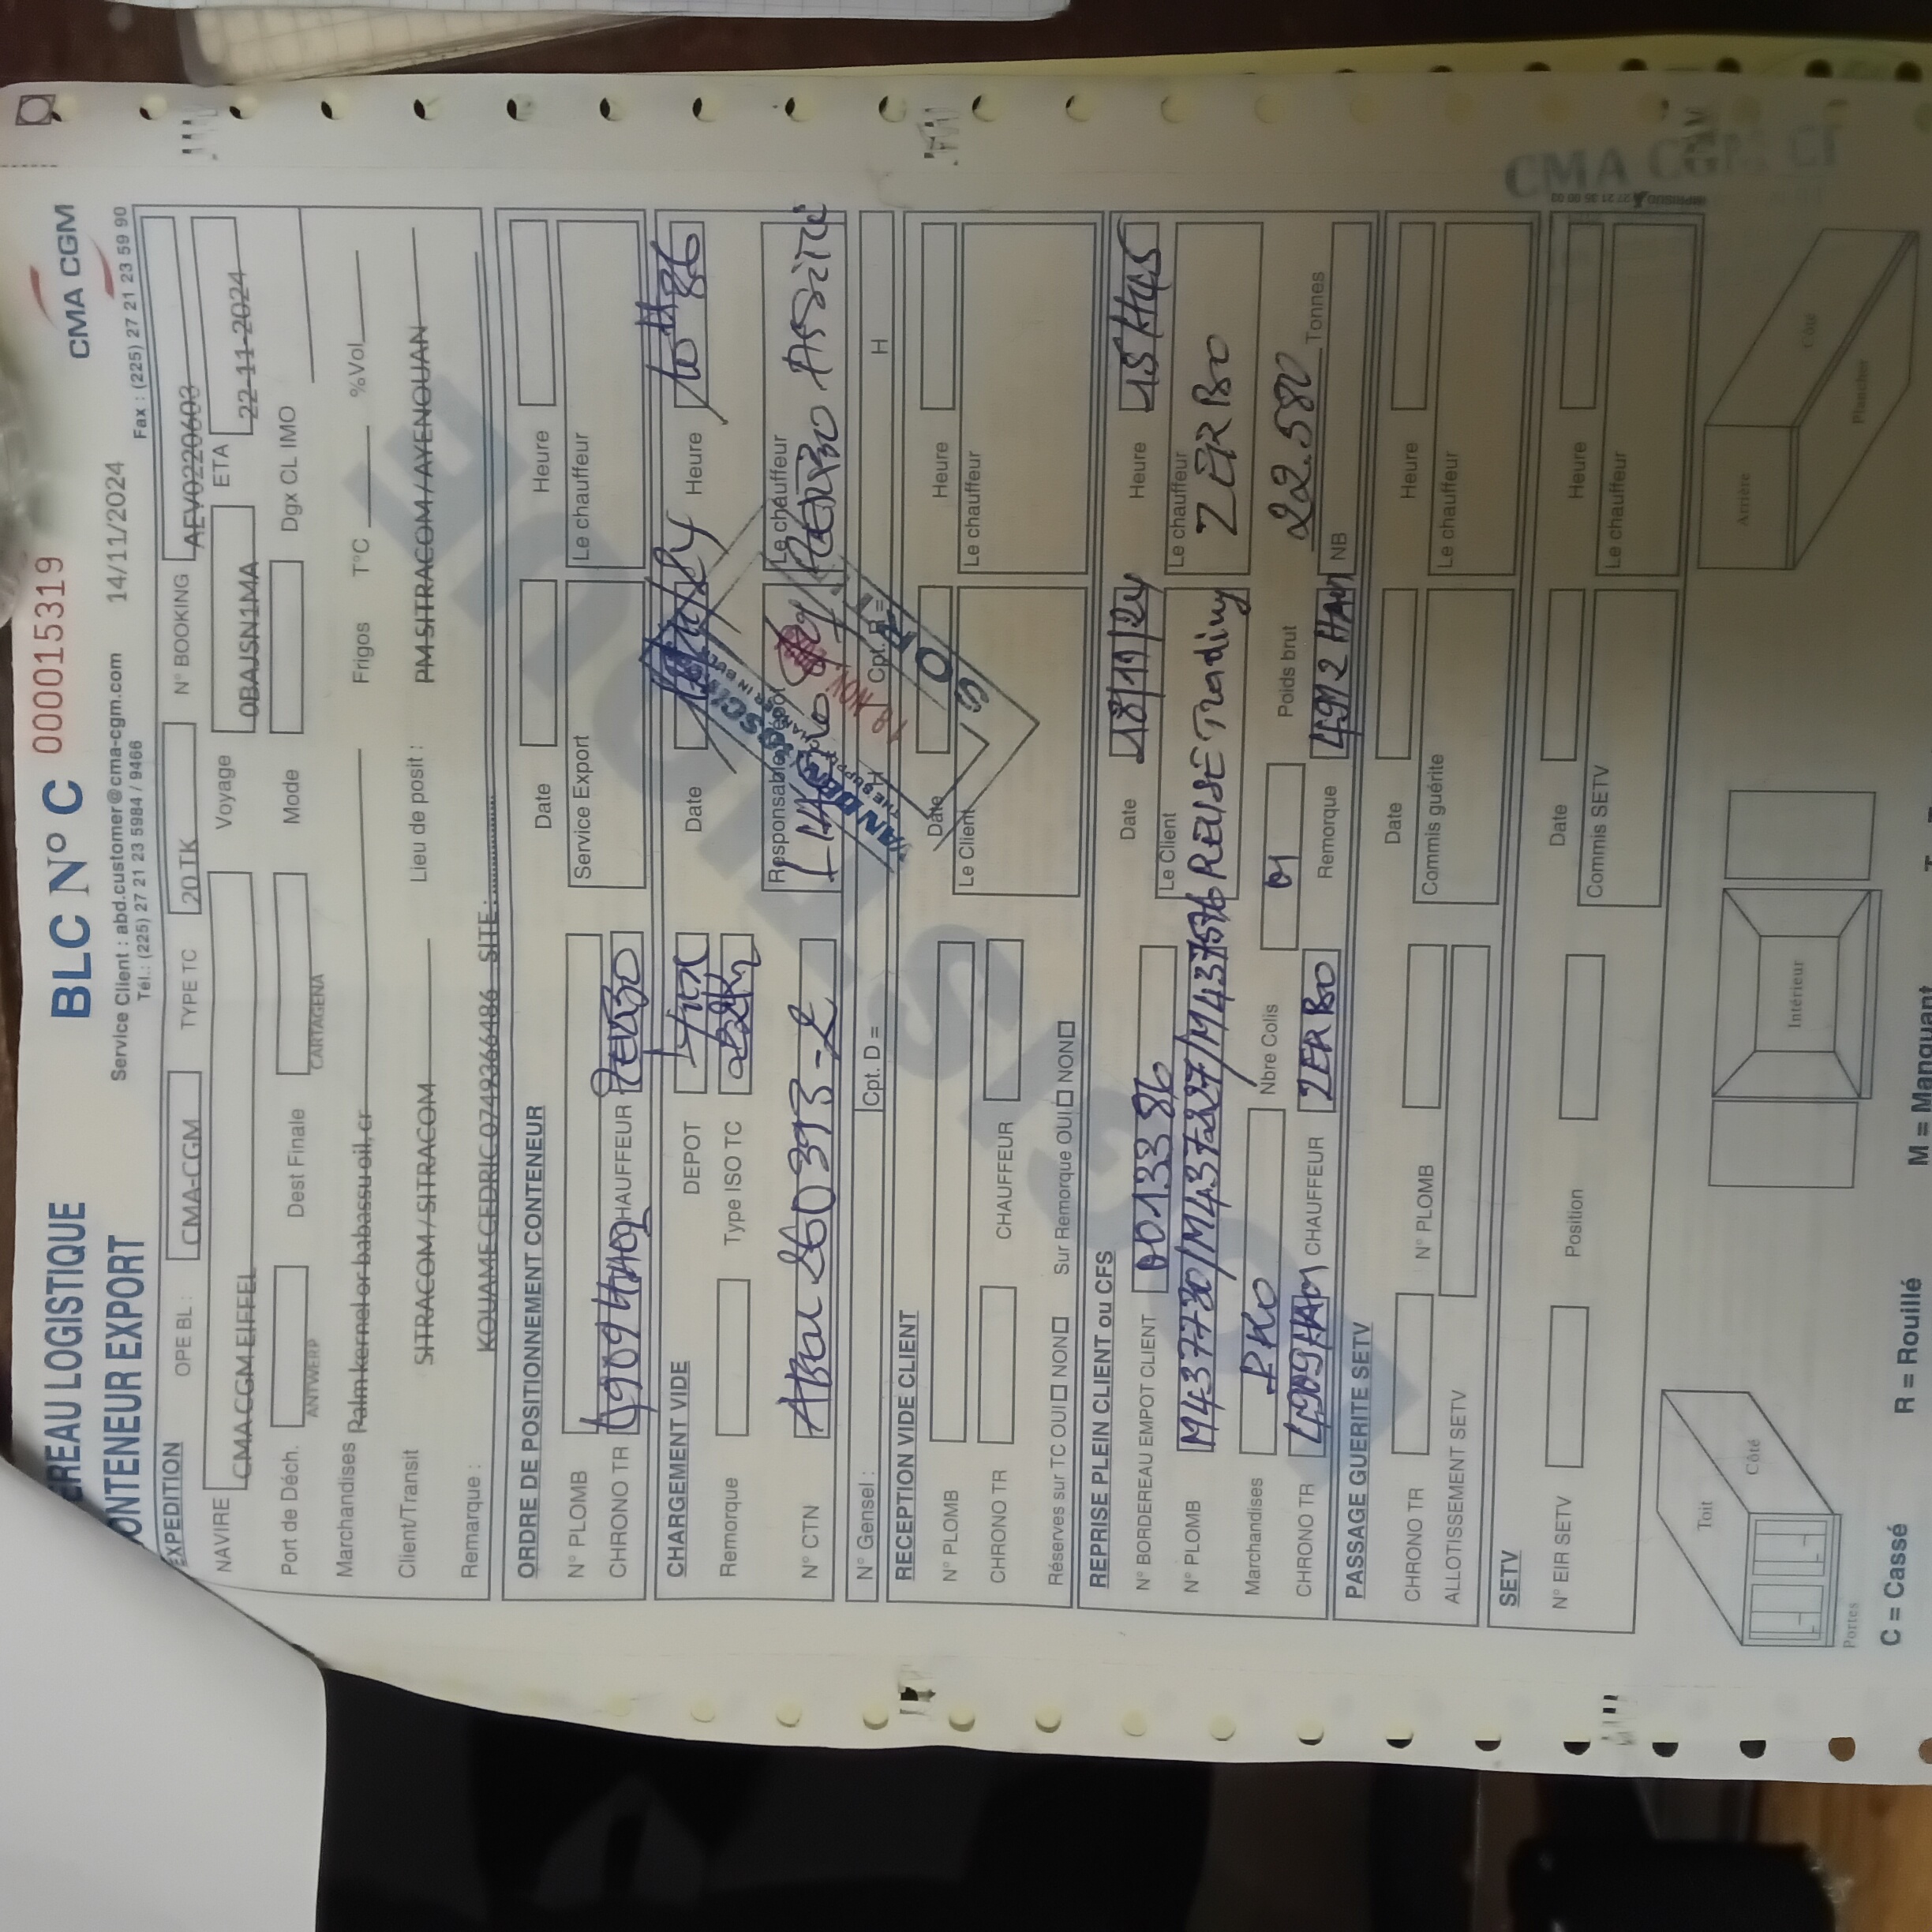 EREAU LOGISTIQUE
ONTENEUR EXPORT
BLC N° C 000015319
CMA CGM
Service Client : abd.customer@cma-cgm.com 14/11/2024
Tél.: (225) 27 21 23 5984 / 9466 Fax : (225) 27 21 23 59 90
EXPEDITION OPE BL : CMA-CGM TYPE TC 20 TK N° BOOKING AEV0220603
NAVIRE CMA CGM EIFFEL Voyage 0BAJSN1MA ETA 22-11-2024
Port de Déch. ANTWERP Dest Finale CARTAGENA Mode Dgx CL IMO
Marchandises Palm kernel or babassu oil, cr Frigos T°C %Vol
Client/Transit SITRACOM / SITRACOM Lieu de posit : PM SITRACOM / AYENOUAN
Remarque : KOUAME CEDRIC 0749366486 SITE :
ORDRE DE POSITIONNEMENT CONTENEUR Date Heure
N° PLOMB Service Export Le chauffeur
CHRONO TR HAUFFEUR ZERBO
CHARGEMENT VIDE DEPOT Date Heure
Remorque Type ISO TC 22K2
N° CTN 260393-2 Responsable Dépôt Le chauffeur ZERBO
VAN DEN BOSCH
THE SUPPLY CHAINER IN BULK
18 NOV.
SORTI
N° Gensel : Cpt. D = H Cpt. R = H
RECEPTION VIDE CLIENT
N° PLOMB Date Heure
CHRONO TR CHAUFFEUR Le Client Le chauffeur
Réserves sur TC OUI NON Sur Remorque OUI NON
REPRISE PLEIN CLIENT ou CFS Date 18/11/24 Heure 15H45
N° BORDEREAU EMPOT CLIENT 0013386
N° PLOMB M437730/M437227/M437576 Le Client REUSE Trading Le chauffeur ZERBO
Marchandises PKO Nbre Colis 01 Poids brut 22.580 Tonnes
CHRONO TR 4909HA01 CHAUFFEUR ZERBO Remorque 4912HA01 NB
PASSAGE GUERITE SETV Date Heure
CHRONO TR N° PLOMB Commis guérite Le chauffeur
ALLOTISSEMENT SETV
SETV Date Heure
N° EIR SETV Position Commis SETV Le chauffeur
LOGISTIQUE
CMA CGM
Toit
Côté
Portes
Intérieur
Arrière
Côté
Plancher
C = Cassé R = Rouillé M = Manquant